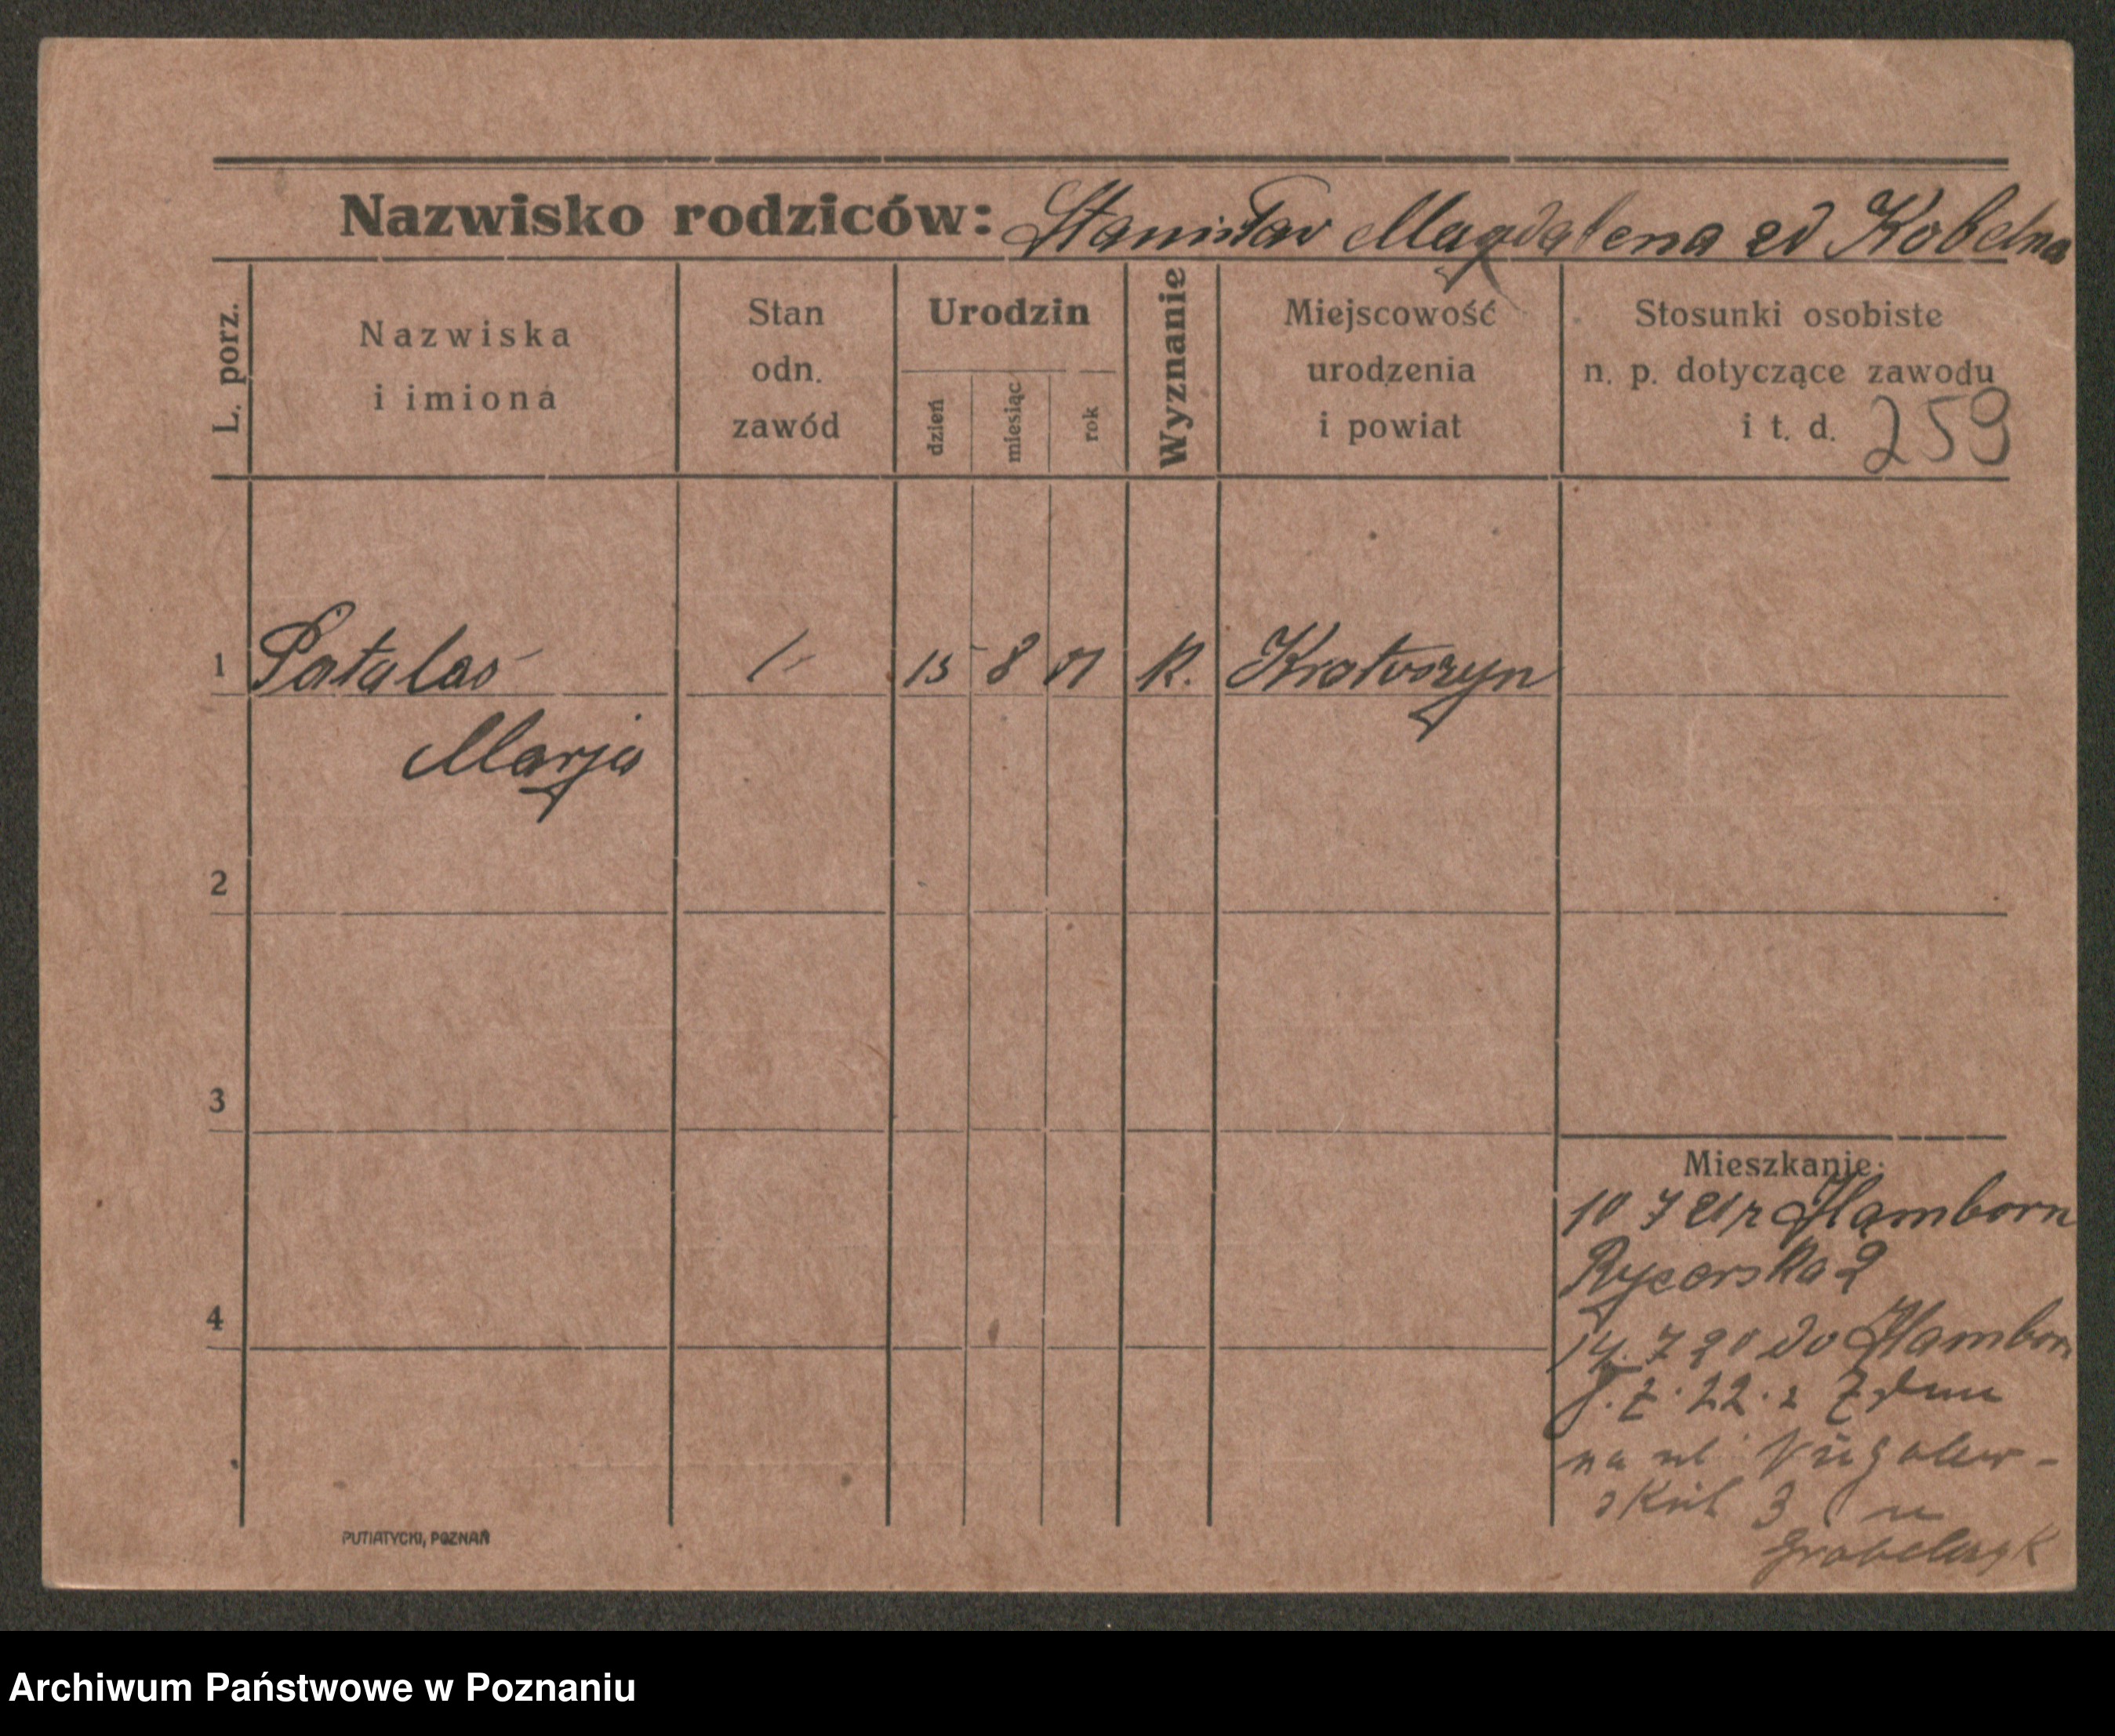 Nazwisko rodziców: Stanisław Magdalena zd Kobelna
L. porz.
Nazwiska
i imiona
Stan
odn.
zawód
Urodzin
dzień
miesiąc
rok
Wyznanie
Miejscowość
urodzenia
i powiat
Stosunki osobiste
n. p. dotyczące zawodu
i t. d. 259
1 Patalas 15 8 01 K. Krotoszyn
Marja
2
3
4
Mieszkanie:
10 7 z Hamborn
Rycerska 2
14. 7 20 do Hamborn
22. z Zdun
na ul
3 u
PUTIATYCKI, POZNAŃ
Archiwum Państwowe w Poznaniu